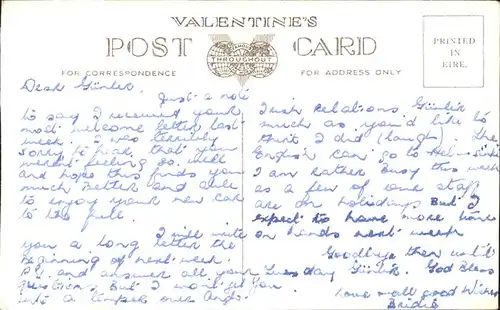 VALENTINE'S
POST CARD
FAMOUS THROUGHOUT THE WORLD
FOR CORRESPONDENCE
FOR ADDRESS ONLY
PRINTED
IN
EIRE.
Dear Günter,
Just a note
to say I received your
most welcome letter last
week. I was terribly
sorry to hear that you
weren't feeling so well
and hope this finds you
much better and able
to enjoy your new car
to the full.
I will write
you a long letter the
beginning of next week
P.G. and answer all your
questions. But I won't get you
into a temper over Anglo
Irish Relations, Günter
much as you'd like to
think I did (laugh). The
English can go to
I am rather busy this week
as a few of our staff
are on holidays But I
expect to have more time
on hands next week
Goodbye then until
Tuesday Günter. God Bless
Love & all good Wishes
Bridie